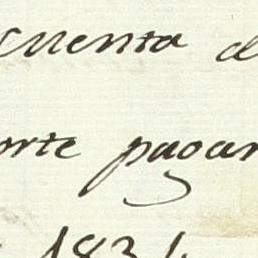 cuenta d
orte pagar
1834